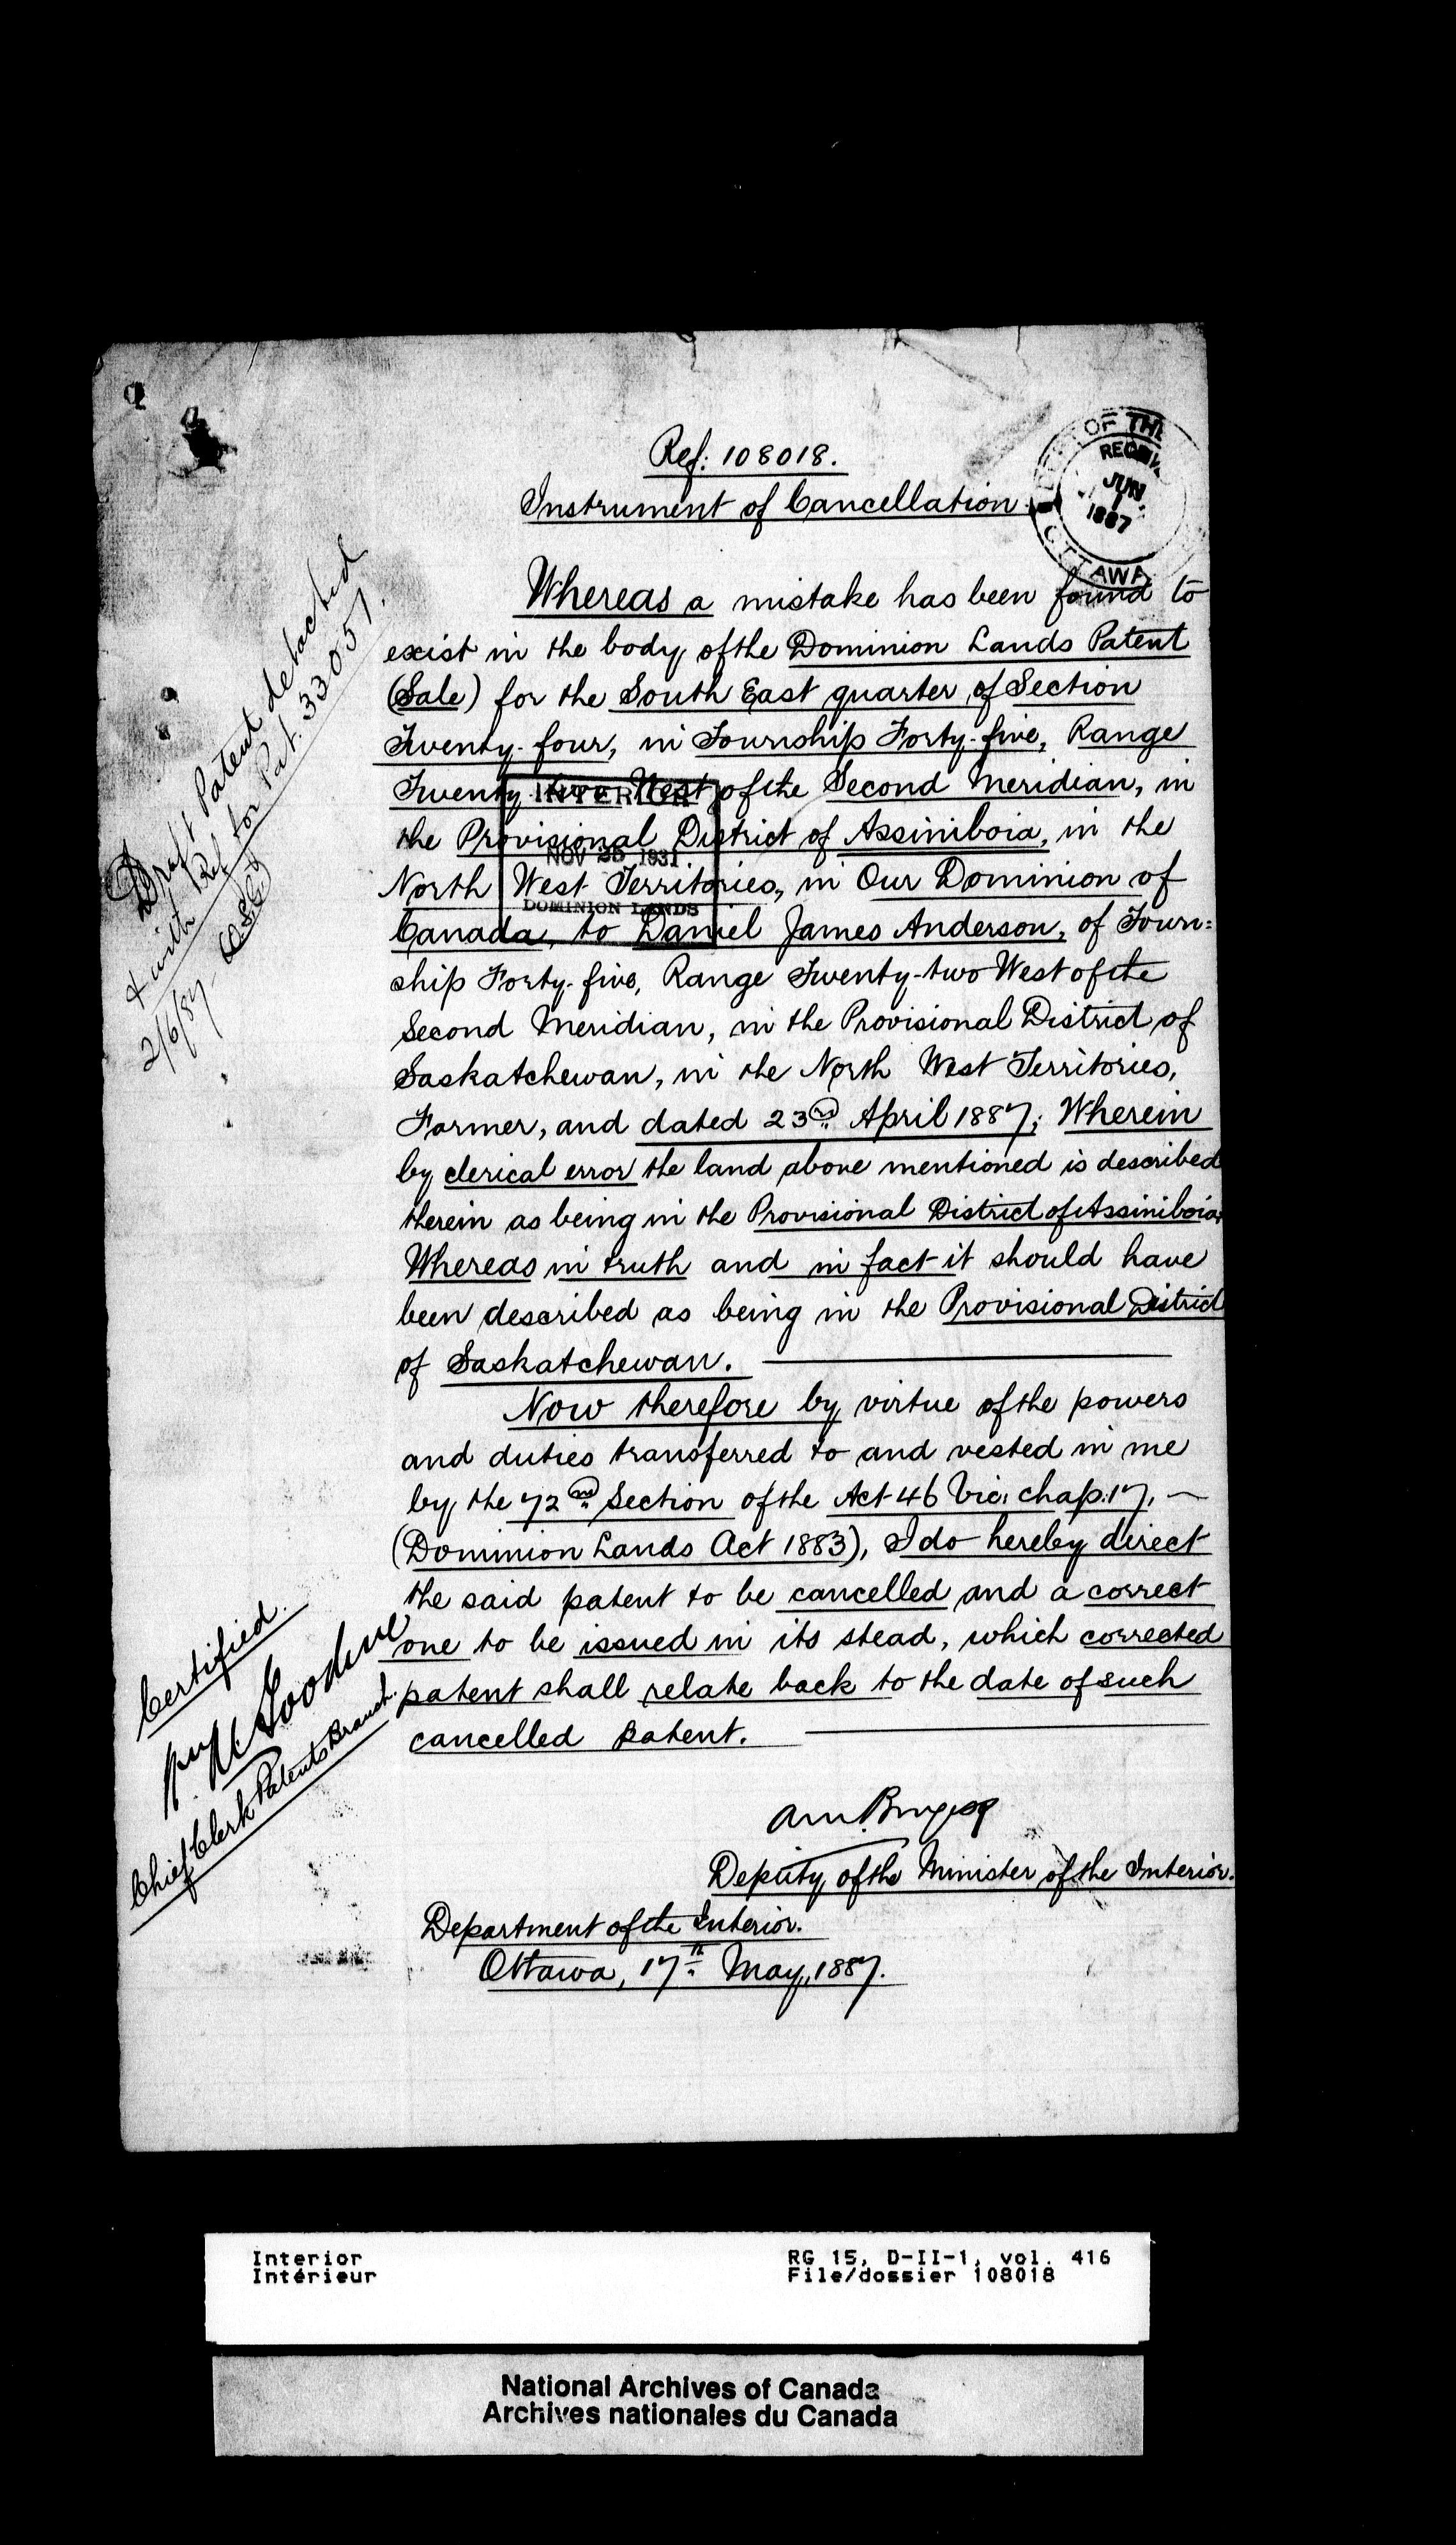 Ref: 108018.
Instrument of Cancellation.
DEPT OF THE
RECEIV
JUN
1
1887
OTTAWA
Whereas a mistake has been found to
exist in the body of the Dominion Lands Patent
(Sale) for the South East quarter of Section
Twenty-four, in Township Forty-five, Range
Twenty two West of the Second Meridian, in
the Provisional District of Assiniboia, in the
North West Territories, in Our Dominion of
Canada, to Daniel James Anderson, of Town=
ship Forty-five, Range Twenty-two West of the
Second Meridian, in the Provisional District of
Saskatchewan, in the North West Territories,
Farmer, and dated 23rd April 1887; Wherein
by clerical error the land above mentioned is described
therein as being in the Provisional District of Assiniboia,
Whereas in truth and in fact it should have
been described as being in the Provisional District
of Saskatchewan.
Now therefore by virtue of the powers
and duties transferred to and vested in me
by the 72nd Section of the Act 46 Vic: chap: 17,
(Dominion Lands Act 1883), I do hereby direct
the said patent to be cancelled and a correct
one to be issued in its stead, which corrected
patent shall relate back to the date of such
cancelled patent.
INTERIOR
NOV 25 1931
DOMINION LANDS
Draft Patent detached
& with Ref for Pat. 33051.
2/6/87
Certified.
Chief Clerk Patents Branch.
A M Burgess
Deputy of the Minister of the Interior.
Department of the Interior.
Ottawa, 17th May, 1887.
Interior
Intérieur
RG 15, D-II-1, vol. 416
File/dossier 108018
National Archives of Canada
Archives nationales du Canada